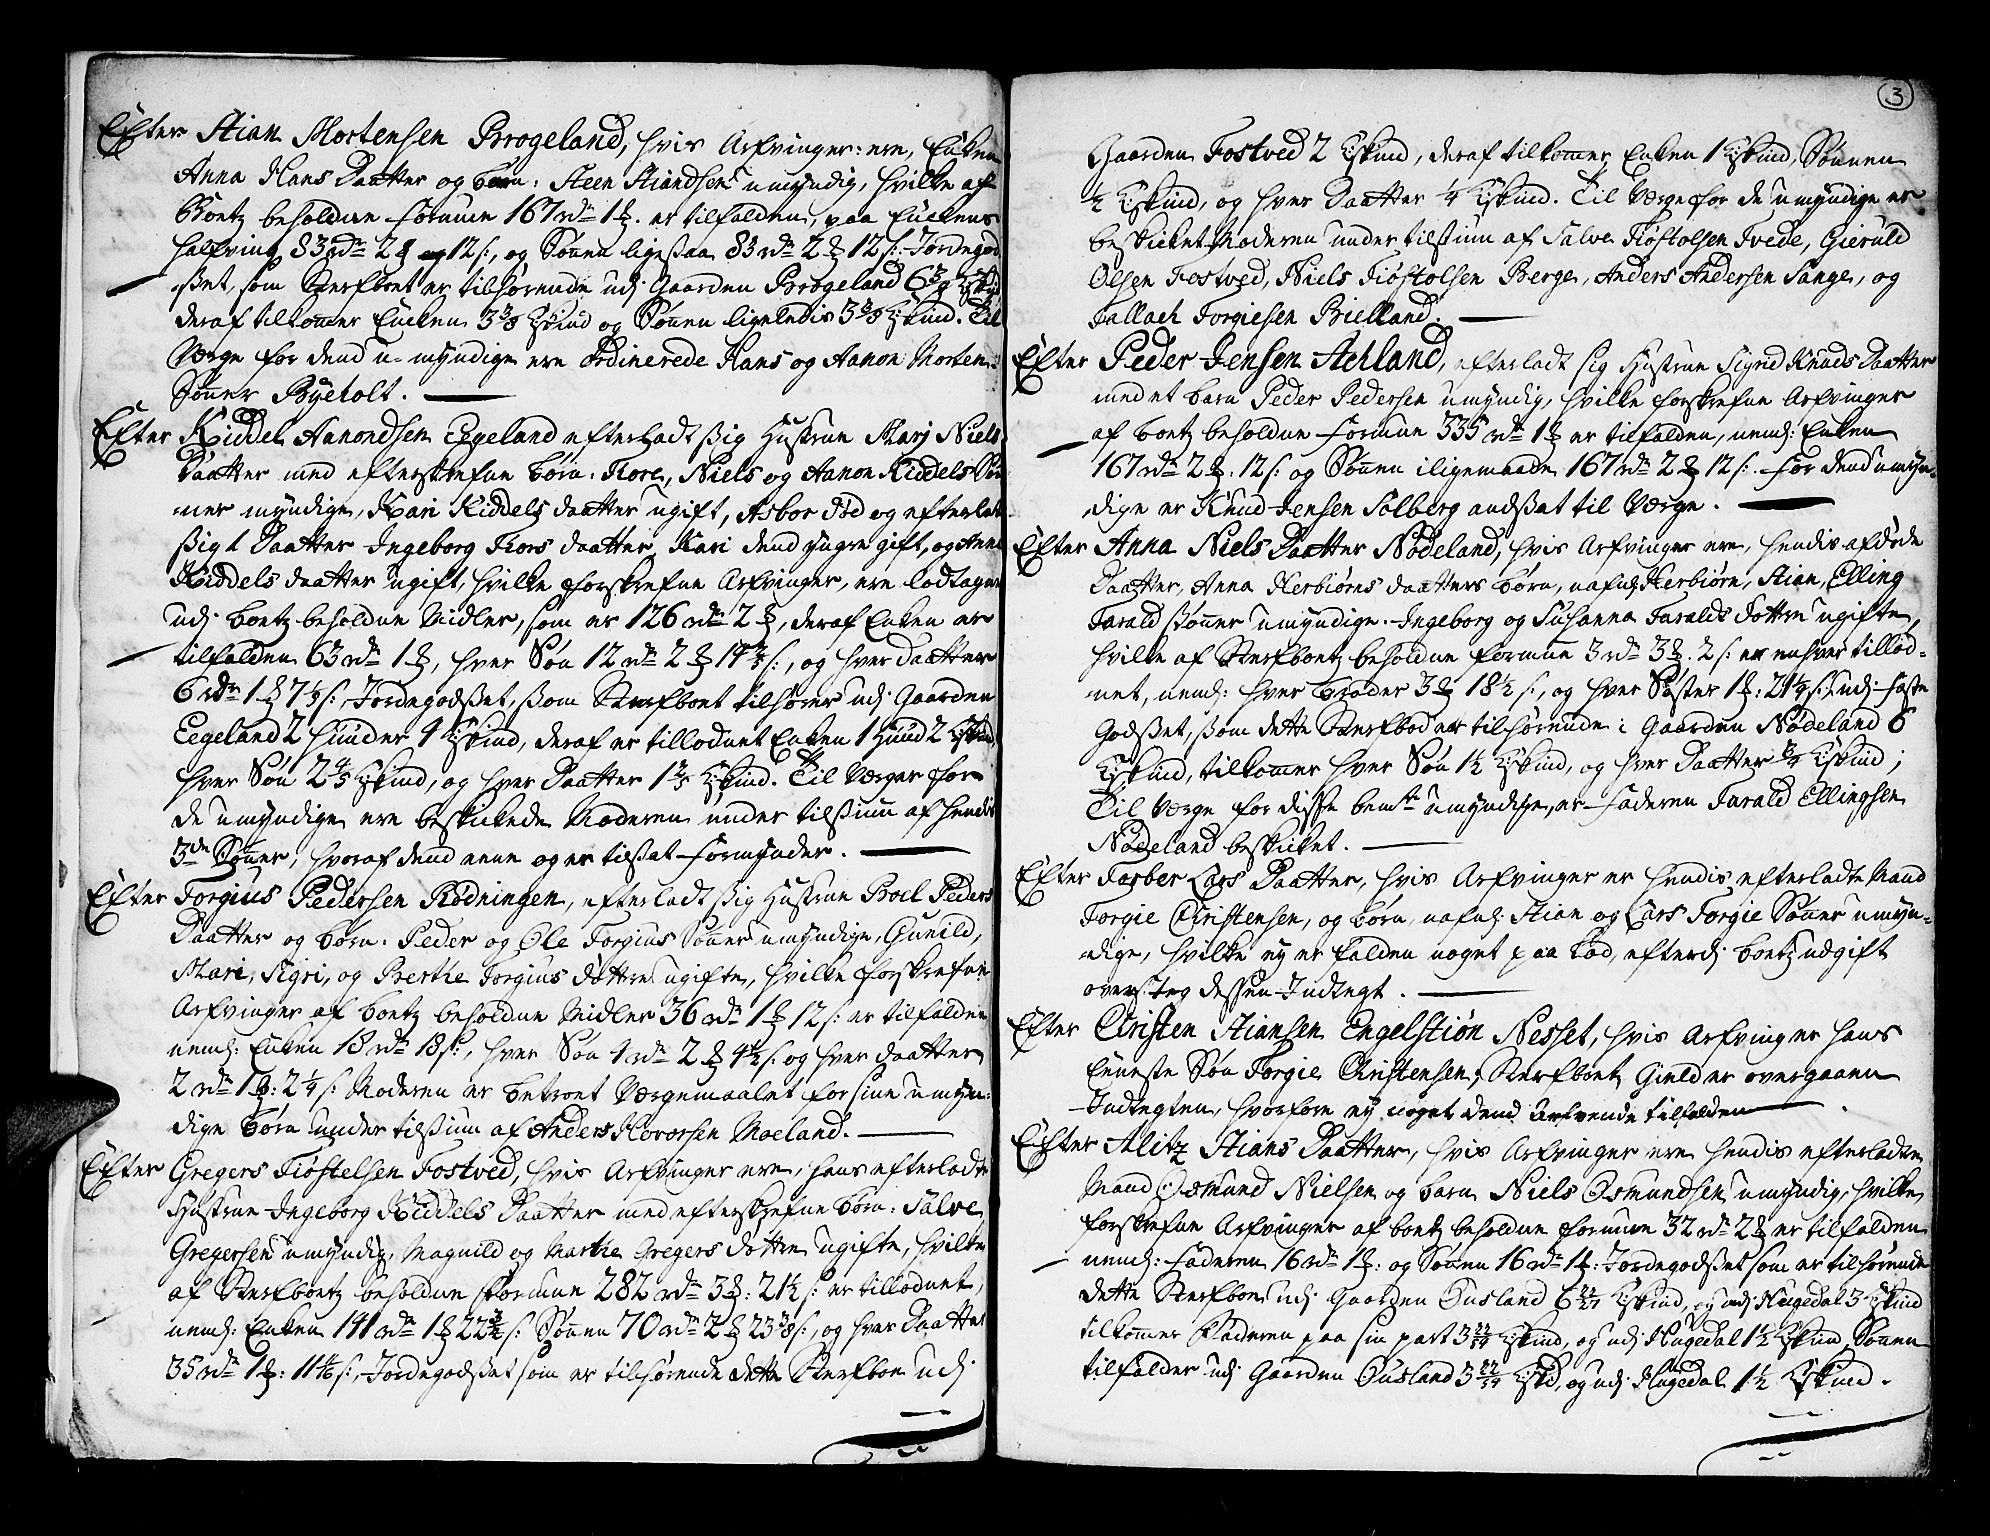 Efter Stian Mortensen Brogeland, hvis Arfvinger: ere, Enken
Anna Hans Daatter og børn: Steen Stiandsen umyndig, hvilke af
Boetz beholdne formue 167 rdr 1 ℔. er tilfalden, paa Enckens
halfving 83 rdr 2 ℔ og 12 s:, og Sønnen ligessaa 83 rdr 2 ℔ 12 s: Jordegod
sset, som Sterfboet er tilhørende udj Gaarden Brogeland 6 3/4
deraf tilkommer Encken 3 3/8 Kskind og Sønnen ligeledis 3 3/8 Kskind. Til
Værge for dend u-myndige ere Ordinerede Hans og Aanon Morten
Sønner Byetolt.
Efter Kiddel Aanondsen Egeland efterladt ssig Hustrue Marj Niels
Daatter med efterskrefne børn: Tore, Niels og Aanon Kiddels Søn
ner myndige, Kari Kiddels daatter ugift, Asbor død og efterlat
ssig 1 Daatter Ingeborg Tors daatter, Kari dend yngre gift, og Anna
Kiddels daatter ugift, hvilke forskrefne Arfvinger, ere lodtagen
udj boetz beholdne Midler, som er 126 rdr 2 ℔, deraf Enken er
tilfalden 63 rdr 1 ℔, hver Søn 12 rdr 2 ℔ 14 2/9 s:, og hver daatter
6 rdr 1 ℔ 7 1/9 s:, Jordegodsset, ssom Sterfboet tilhører udj Gaarden
Eegeland 2 huuder 4 Kskind, deraf er tillodnet Enken 1 Huud 2 Kskind
hver Søn 2 4/5 Kskind, og hver Daatter 1 2/5 Kskind. Til Værger for
de umyndige ere beskickede Moderen under tilssiun af hendis
3de Sønner, hvoraf dend eene og er tilssat Formynder.
Efter Torgius Pedersen Rødningen, efterladt ssig Hustrue Broel Peders
Daatter og børn: Peder og Ole Torgius Sønner umyndige, Gunild,
Mari, Sigri, og Berthe Torgius døttre ugifte, hvilke forskrefne
Arfvinger af boetz beholdne Midler 36 rdr 1 ℔ 12 s: er tilfalden
neml: Enken 18 rdr 18 s:, hver Søn 4 rdr 2 ℔ 4 1/2 s: og hver daatter
2 rdr 1 ℔: 2 1/4 s: Moderen er betroet Værgemaalet for sine umyn-
dige børn under tilssiun af Anders Hovorsen Moeland.
Efter Gregers Tiøstelsen Fostved, hvis Arfvinger ere, hans efterladte
Hustrue Ingeborg Kiddels Daatter med efterskrefne børn: Salve
Gregersen umyndig, Magnild og Marthe Gregers døttre ugifte, hvilke
af Sterfboetz beholdne formue 282 rdr 3 ℔: 21 1/2 s: er tillodnet,
neml: Enken 141 rdr 1 ℔ 22 3/4 s: Sønnen 70 rdr 2 ℔ 23 3/8 s:, og hver Daatter
35 rdr 1 ℔: 11 s:, Jordegodsset som er tilhørende dette Sterfboe udj
3
Gaarden Fostved 2 Kskind, deraf tilkommer Enken 1 Kskind, Sønnen
1/2 Kskind, og hver Daatter 1/4 Kskind. Til Værge for de umyndige er
beskicket Moderen under tilssiun af Salve Tiøstolsen Tvede, Gieruld
Olsen Fostved, Niels Tiøstolsen Berge, Anders Andersen Sange, og
Tallach Torgiesen Bielland.
Efter Peder Jensen Achland, efterladt sig Hustrue Sigrid Knuds Daatter
med et barn Peder Pedersen umyndig, hvilke forskrefne Arfvinger
af boetz beholdne Formue 335 rdr 1 ℔ er tilfalden, neml: Enken
167 rdr 2 ℔: 12 s: og Sønnen iligemaade 167 rdr 2 ℔ 12 s: For dend umyn-
dige er Knud Jensen Solberg andssat til Værge.
Efter Anna Niels Daatter Nødeland, hvis Arfvinger ere, hendis afdøde
Daatter, Anna Herbiørns daatters børn, nafnl: Herbiørn, Stian, Elling
Tarald ssønner umyndige. Ingeborg og Susanna Taralds døttre ugifte,
hvilke af Sterfboetz beholdne formue 3 rdr 3 ℔. 2 s: er enhver tillod-
net, neml: hver broder 3 ℔ 18 1/2 s:, og hver Søster 1 ℔: 21 1/4 s: udj faste
Godsset, ssom dette Sterfboe er tilhørende i Gaarden Nødeland 6
Kskind, tilkommer hver Søn 1 1/2 Kskind, og hver Daatter 3/4 Kskind;
Til Værge for disse bemte umyndige, er Faderen Tarald Ellingsen
Nødeland beskicket.
Efter Torber Lars Daatter, hvis Arfvinger er hendis efterladte Mand
Torgie Christensen, og børn, nafnl: Stian og Lars Torgie Sønner umyn-
dige, hvilke ey er falden noget paa Lod, efterdj boetz udgift
oversteg dessen Indtegt.
Efter Christen Stiansen Engelstiøn Nesset, hvis Arfving er hans
Eeneste Søn Torgie Christensen, Sterfboetz Gield er overgaaen
Indtegten, hvorfore ey noget dend Arfvende tilfalden
Efter Alitz Stians Daatter, hvis Arfvinger ere hendis efterladte
Mand Osmund Nielsen og barn Niels Osmundsen umyndig, hvilke
forskrefne Arfvinger af boetz beholdne formue 32 rdr 2 ℔ er tilfalden
neml: Faderen 16 rdr 1 ℔: og Sønnen 16 rdr 1 ℔: Jordegodsset som er tilhørende
dette Sterfboe udj Gaarden Ousland 6 Kskind, og udj Hugedal 3 Kskind
tilkommer Faderen paa sin part 3 Kskind, og udj Hugedal 1 1/2 Kskind, Sønnen
tilfalder udj Gaarden Ousland 3 Kskd, og udj Hugedal 1 1/2 Kskind.